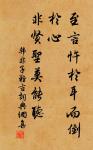 至言忤於耳而倒
於心
非賢聖莫能聽
韓非子難言詞與個集